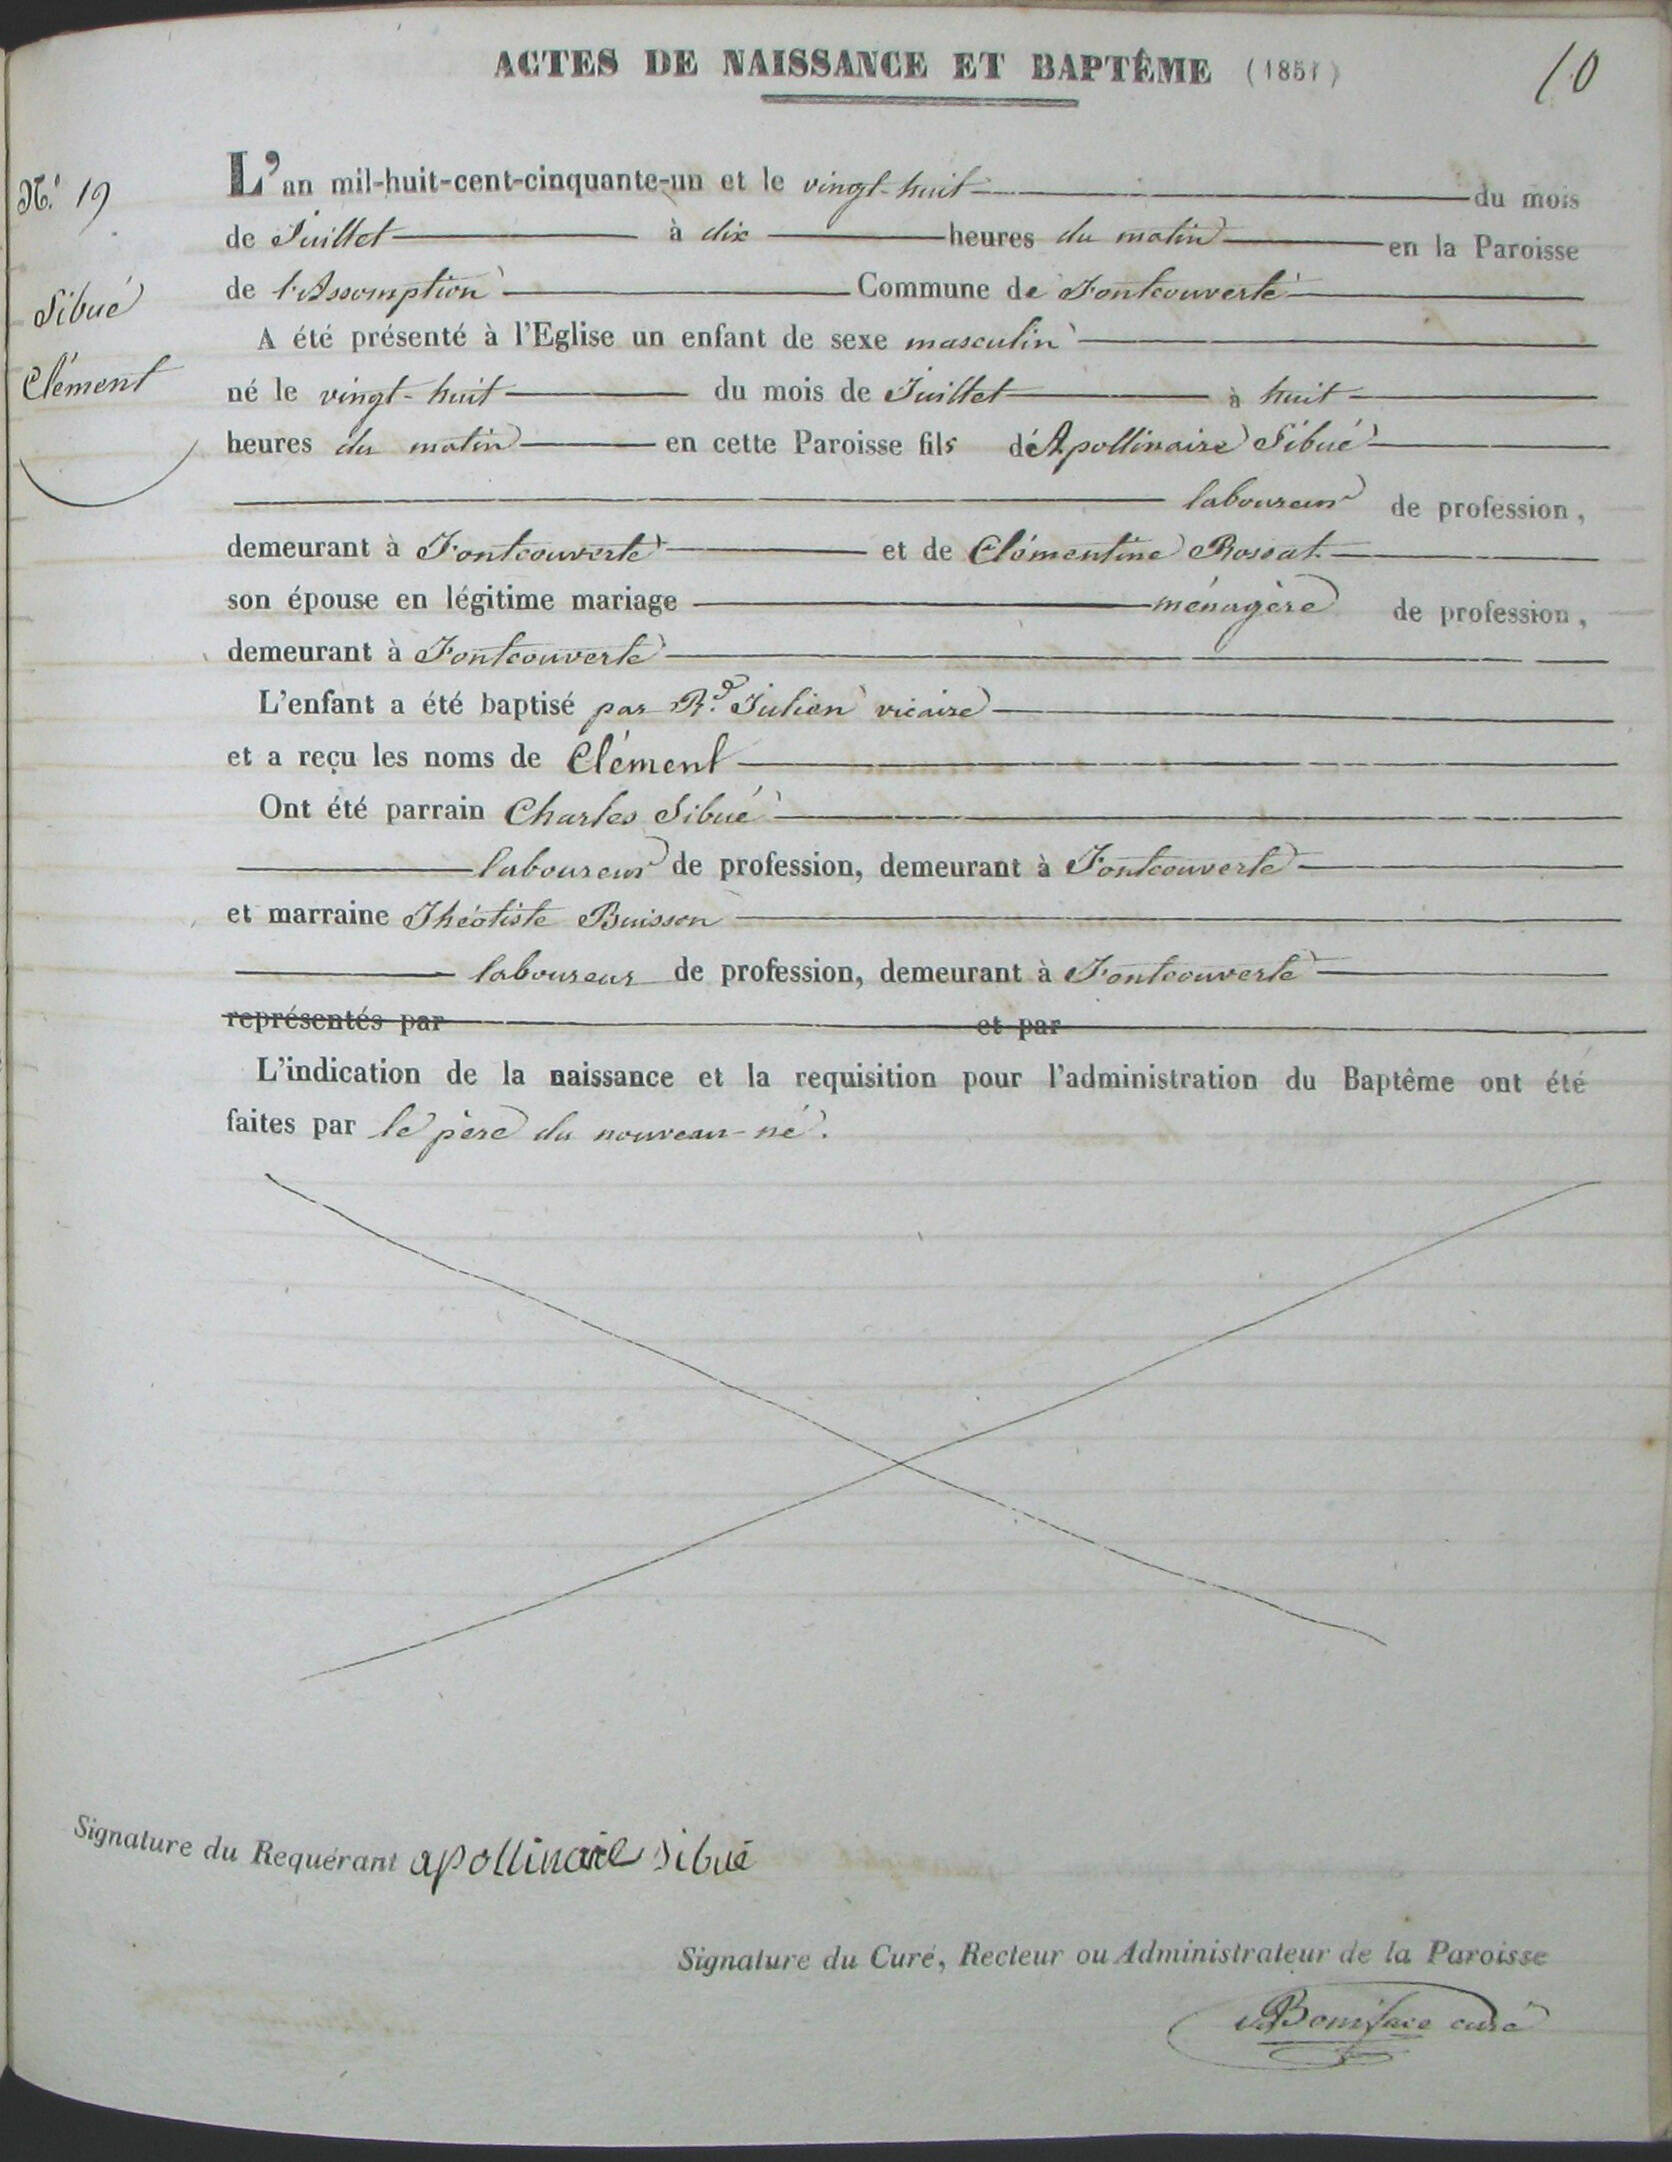 ACTES DE NAISSANCE ET BAPTÊME (1851)
10
N.º 19
Sibué
Clément
L'an mil-huit-cent-cinquante-un et le vingt-huit du mois
de Juillet à dix heures du matin en la Paroisse
de l'Assomption Commune de Fontcouverte
A été présenté à l'Eglise un enfant de sexe masculin
né le vingt-huit du mois de Juillet à huit
heures du matin en cette Paroisse fils d'Apollinaire Sibué
laboureur de profession,
demeurant à Fontcouverte et de Clémentine Rossat
son épouse en légitime mariage ménagère de profession,
demeurant à Fontcouverte
L'enfant a été baptisé par R.d Julien vicaire
et a reçu les noms de Clément
Ont été parrain Charles Sibué
laboureur de profession, demeurant à Fontcouverte
et marraine Théotiste Buisson
laboureur de profession, demeurant à Fontcouverte
représentés par et par
L'indication de la naissance et la requisition pour l'administration du Baptême ont été
faites par le père du nouveau-né.
Signature du Requérant apollinaire sibué
Signature du Curé, Recteur ou Administrateur de la Paroisse
Boniface curé